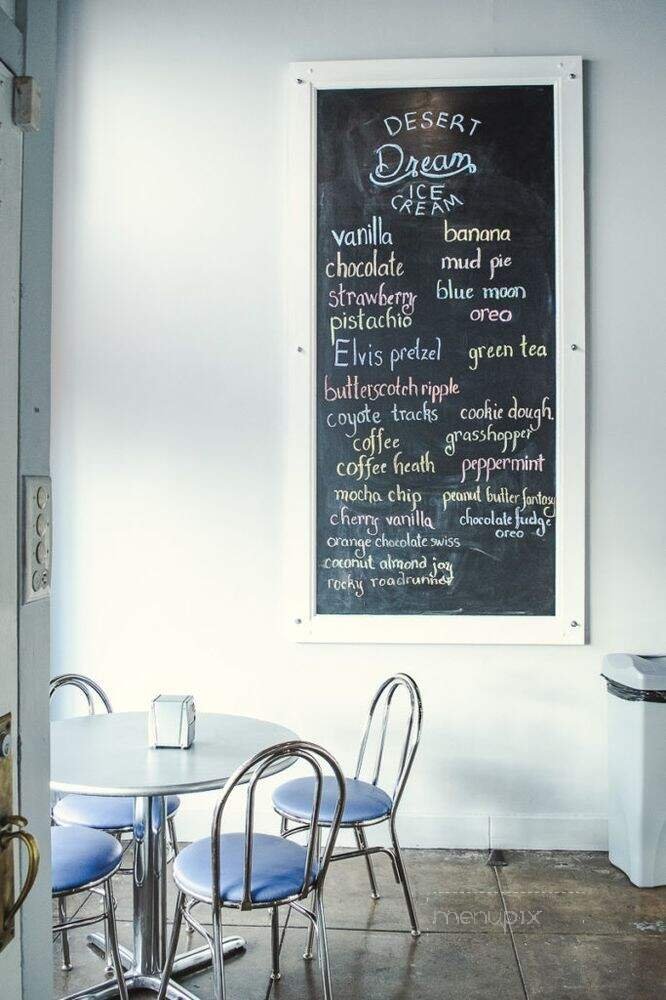 DESERT
Dream
ICE
CREAM
vanilla
chocolate
strawberry
pistachio
Elvis pretzel
butterscotch ripple
coyote tracks
coffee
coffee heath
mocha chip
cherry vanilla
orange chocolate swiss
coconut almond joy
rocky roadrunner
banana
mud pie
blue moon
oreo
green tea
cookie dough
grasshopper
peppermint
peanut butter fantasy
chocolate fudge
oreo
menupix